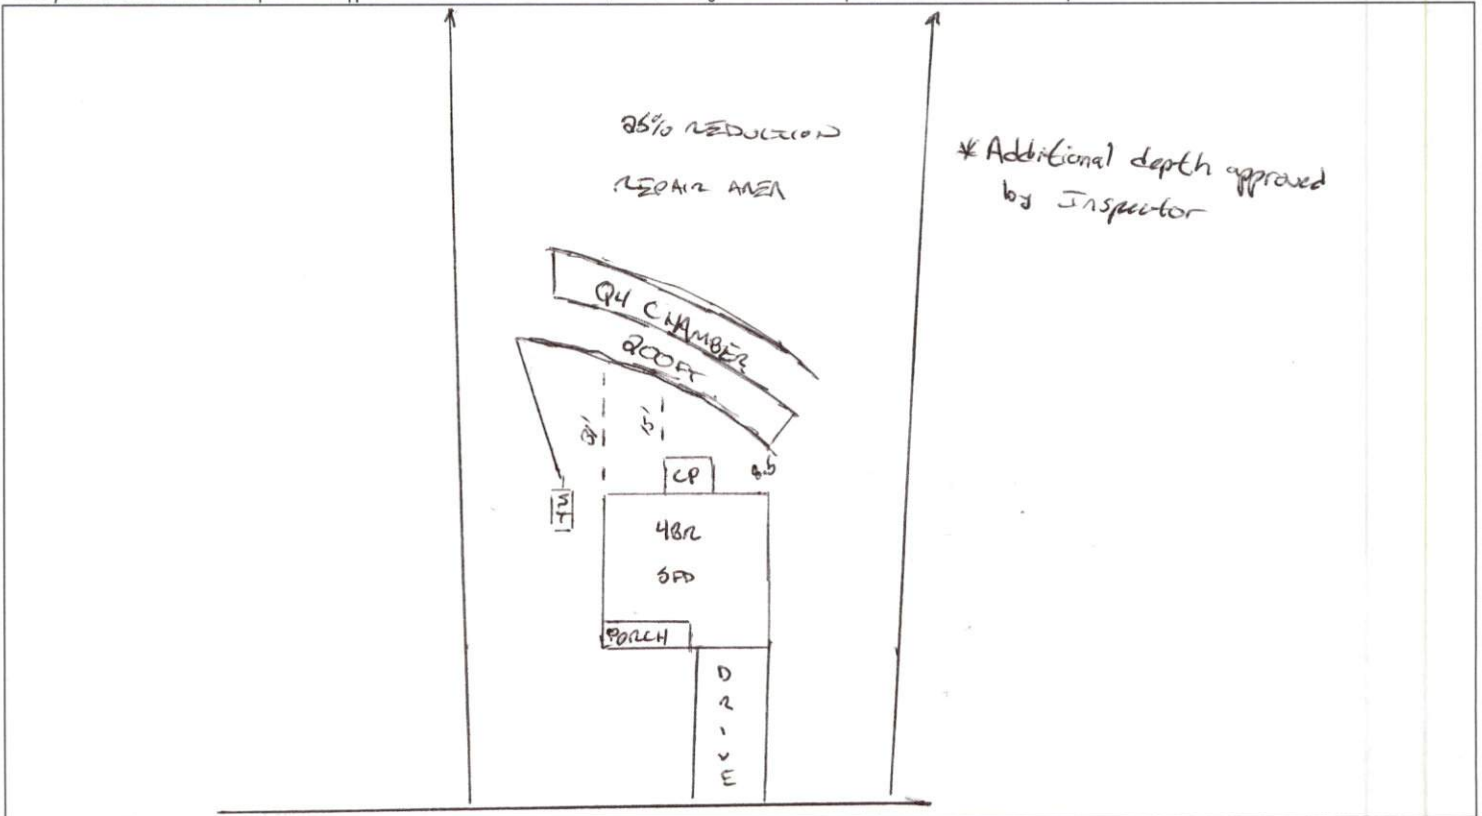 25% REDUCTION
REPAIR AREA
* Additional depth approved
by Inspector
Q4 CHAMBER
200FT
15'
CP
ST
4BR
SFD
PORCH
DRIVE